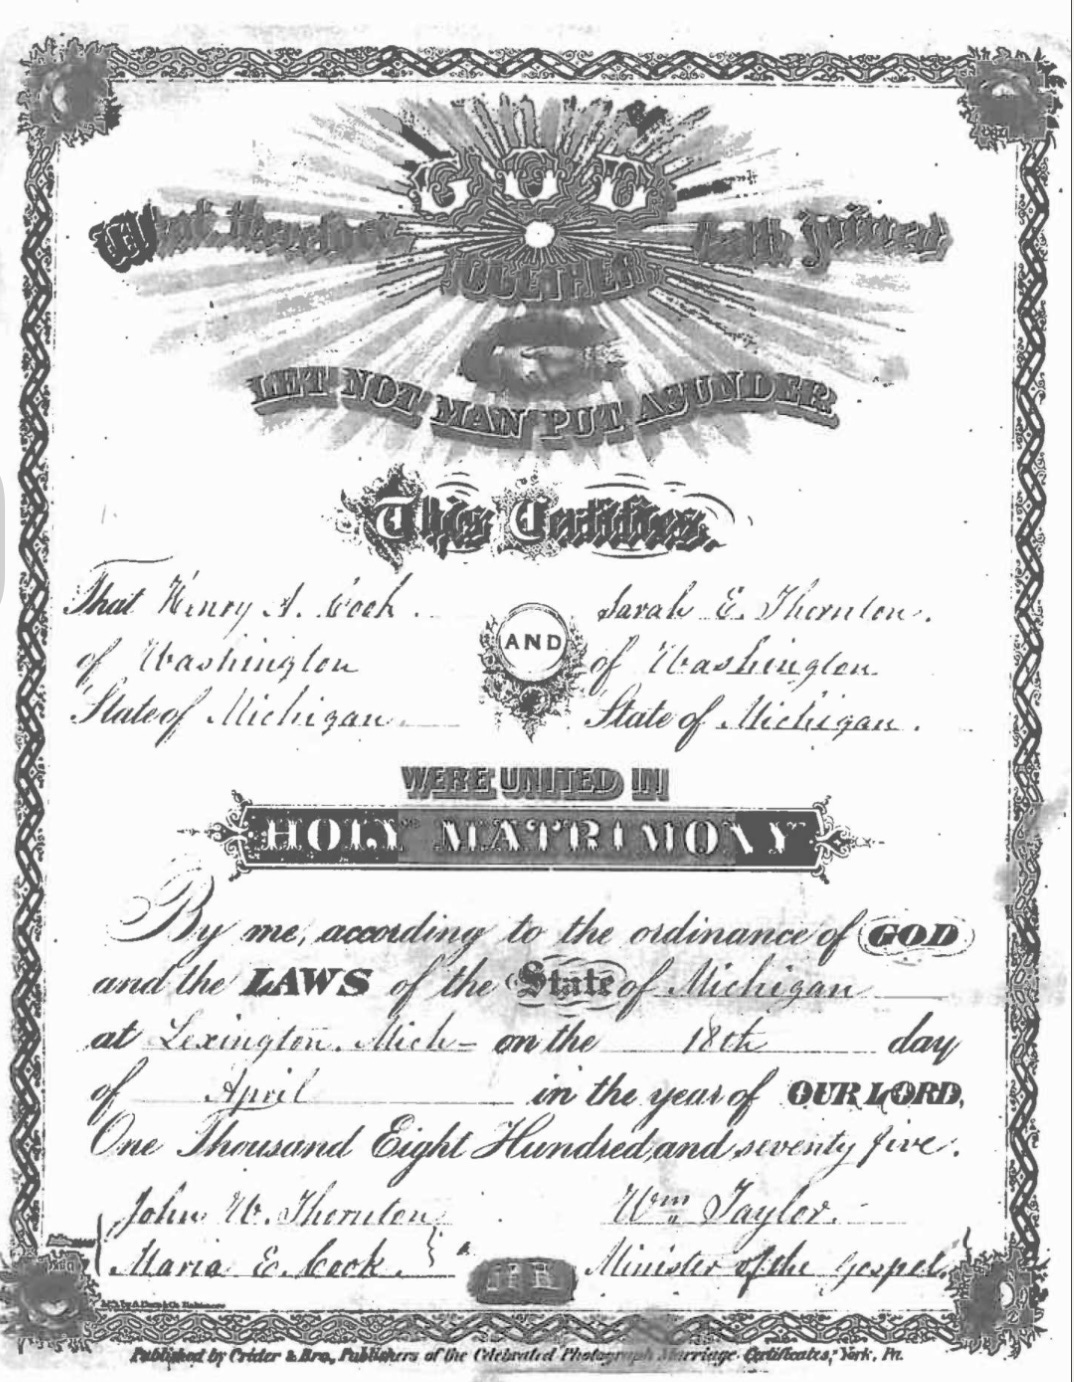 GOD
What therefore hath joined
TOGETHER
LET NOT MAN PUT ASUNDER
This Certifies
That Henry A. Cook. AND Sarah E. Thornton.
of Washington of Washington
State of Michigan. State of Michigan.
WERE UNITED IN
HOLY MATRIMONY
By me, according to the ordinance of GOD
and the LAWS of the State of Michigan
at Lexington, Mich- on the 18th day
of April in the year of OUR LORD,
One Thousand Eight Hundred and seventy five.
John W. Thornton Wm Taylor.
Maria E. Cook. Minister of the Gospel.
Published by Crider & Bro., Publishers of the Celebrated Photograph Marriage Certificates, York, Pa.